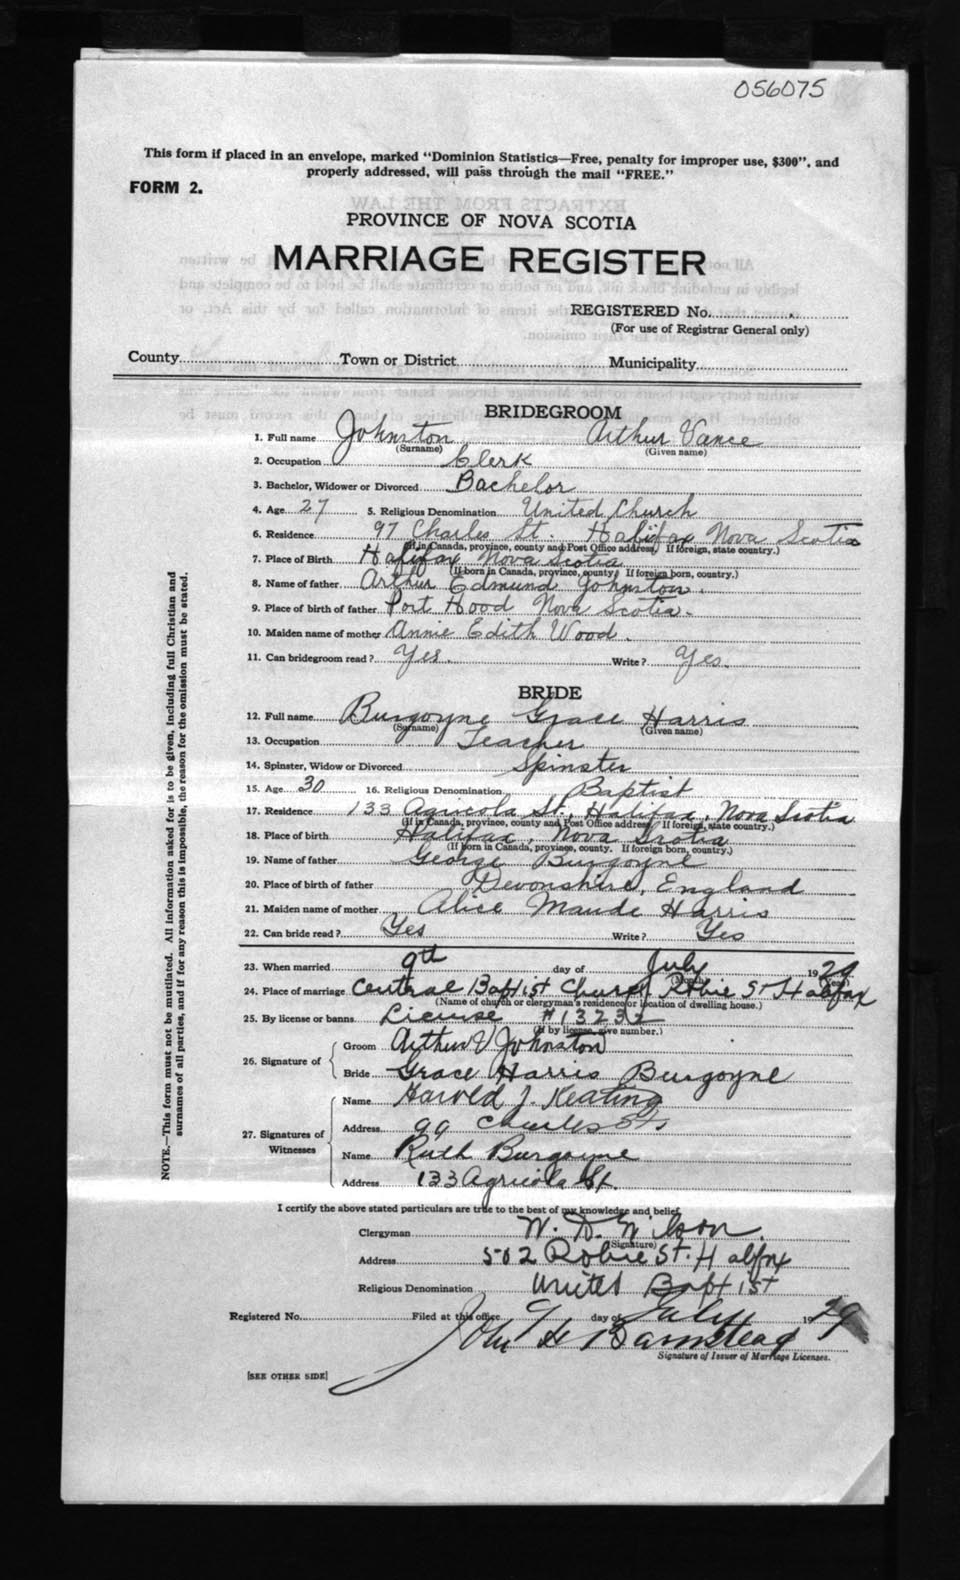 056075
This form if placed in an envelope, marked "Dominion Statistics—Free, penalty for improper use, $300", and
properly addressed, will pass through the mail "FREE."
FORM 2.
PROVINCE OF NOVA SCOTIA
MARRIAGE REGISTER
REGISTERED No.
(For use of Registrar General only)
County Town or District Municipality
BRIDEGROOM
1. Full name Johnston Arthur Vance
(Surname) (Given name)
2. Occupation Clerk
3. Bachelor, Widower or Divorced Bachelor
4. Age 27 5. Religious Denomination United Church
6. Residence 97 Charles St. Halifax Nova Scotia
(If in Canada, province, county and Post Office address. If foreign, state country.)
7. Place of Birth Halifax Nova Scotia
(If born in Canada, province, county. If foreign born, country.)
8. Name of father Arthur Edmund Johnston.
9. Place of birth of father Port Hood Nova Scotia.
10. Maiden name of mother Annie Edith Wood.
11. Can bridegroom read? Yes. Write? Yes.
BRIDE
12. Full name Burgoyne Grace Harris
(Surname) (Given name)
13. Occupation Teacher
14. Spinster, Widow or Divorced Spinster
15. Age 30 16. Religious Denomination Baptist
17. Residence 133 Agricola St., Halifax, Nova Scotia
(If in Canada, province, county and Post Office address. If foreign, state country.)
18. Place of birth Halifax, Nova Scotia
(If born in Canada, province, county. If foreign born, country.)
19. Name of father George Burgoyne
20. Place of birth of father Devonshire, England
21. Maiden name of mother Alice Maude Harris
22. Can bride read? Yes Write? Yes
23. When married 9th day of July 1929
24. Place of marriage Central Baptist Church Robie St Halifax
(Name of church or clergyman's residence or location of dwelling house.)
25. By license or banns License #13232
(If by license, give number.)
26. Signature of Groom Arthur V Johnston
Bride Grace Harris Burgoyne
27. Signatures of Witnesses
Name Harold J. Keating
Address 99 Charles St
Name Ruth Burgoyne
Address 133 Agricola St.
I certify the above stated particulars are true to the best of my knowledge and belief.
Clergyman W. D. Wilson.
(Signature)
Address 502 Robie St. Halifax
Religious Denomination United Baptist
Registered No. Filed at this office 9 day of July 1929
John H Barnstead
Signature of Issuer of Marriage Licenses.
[SEE OTHER SIDE]
NOTE.—This form must not be mutilated. All information asked for is to be given, including full Christian and
surnames of all parties, and if for any reason this is impossible, the reason for the omission must be stated.